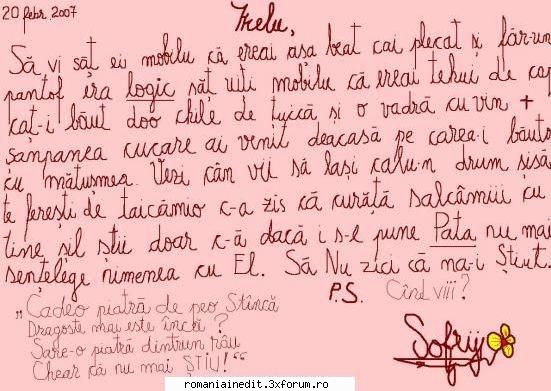 20 febr. 2007
Trelu,
Să vi săt ei mobilu că ereai așa beat cai plecat și făr-un
pantof era logic săt uiți mobilu că ereai tehui de cap
cat-i băut doo chile de țuică și o vadră cu vin +
șampanea cucare ai venit deacasă pe carea-i băuto
cu mătușmea. Vezi cân vii să lași calu-n drum șisă
te ferești de taicămio c-a zis că curăță salcâmiii cu
tine șîl știi doar c-ă dacă i s-e pune Pata nu mai
sențelege nimenea cu El. Să Nu zici că na-i Știut.
P.S. Când viii?
„Cadeo piatră de peo Stîncă
Dragoste mai este încă?
Sare-o piatră dintrun râu
Chear că nu mai ȘTIU!"
Sofrij
romaniainedit.3xforum.ro